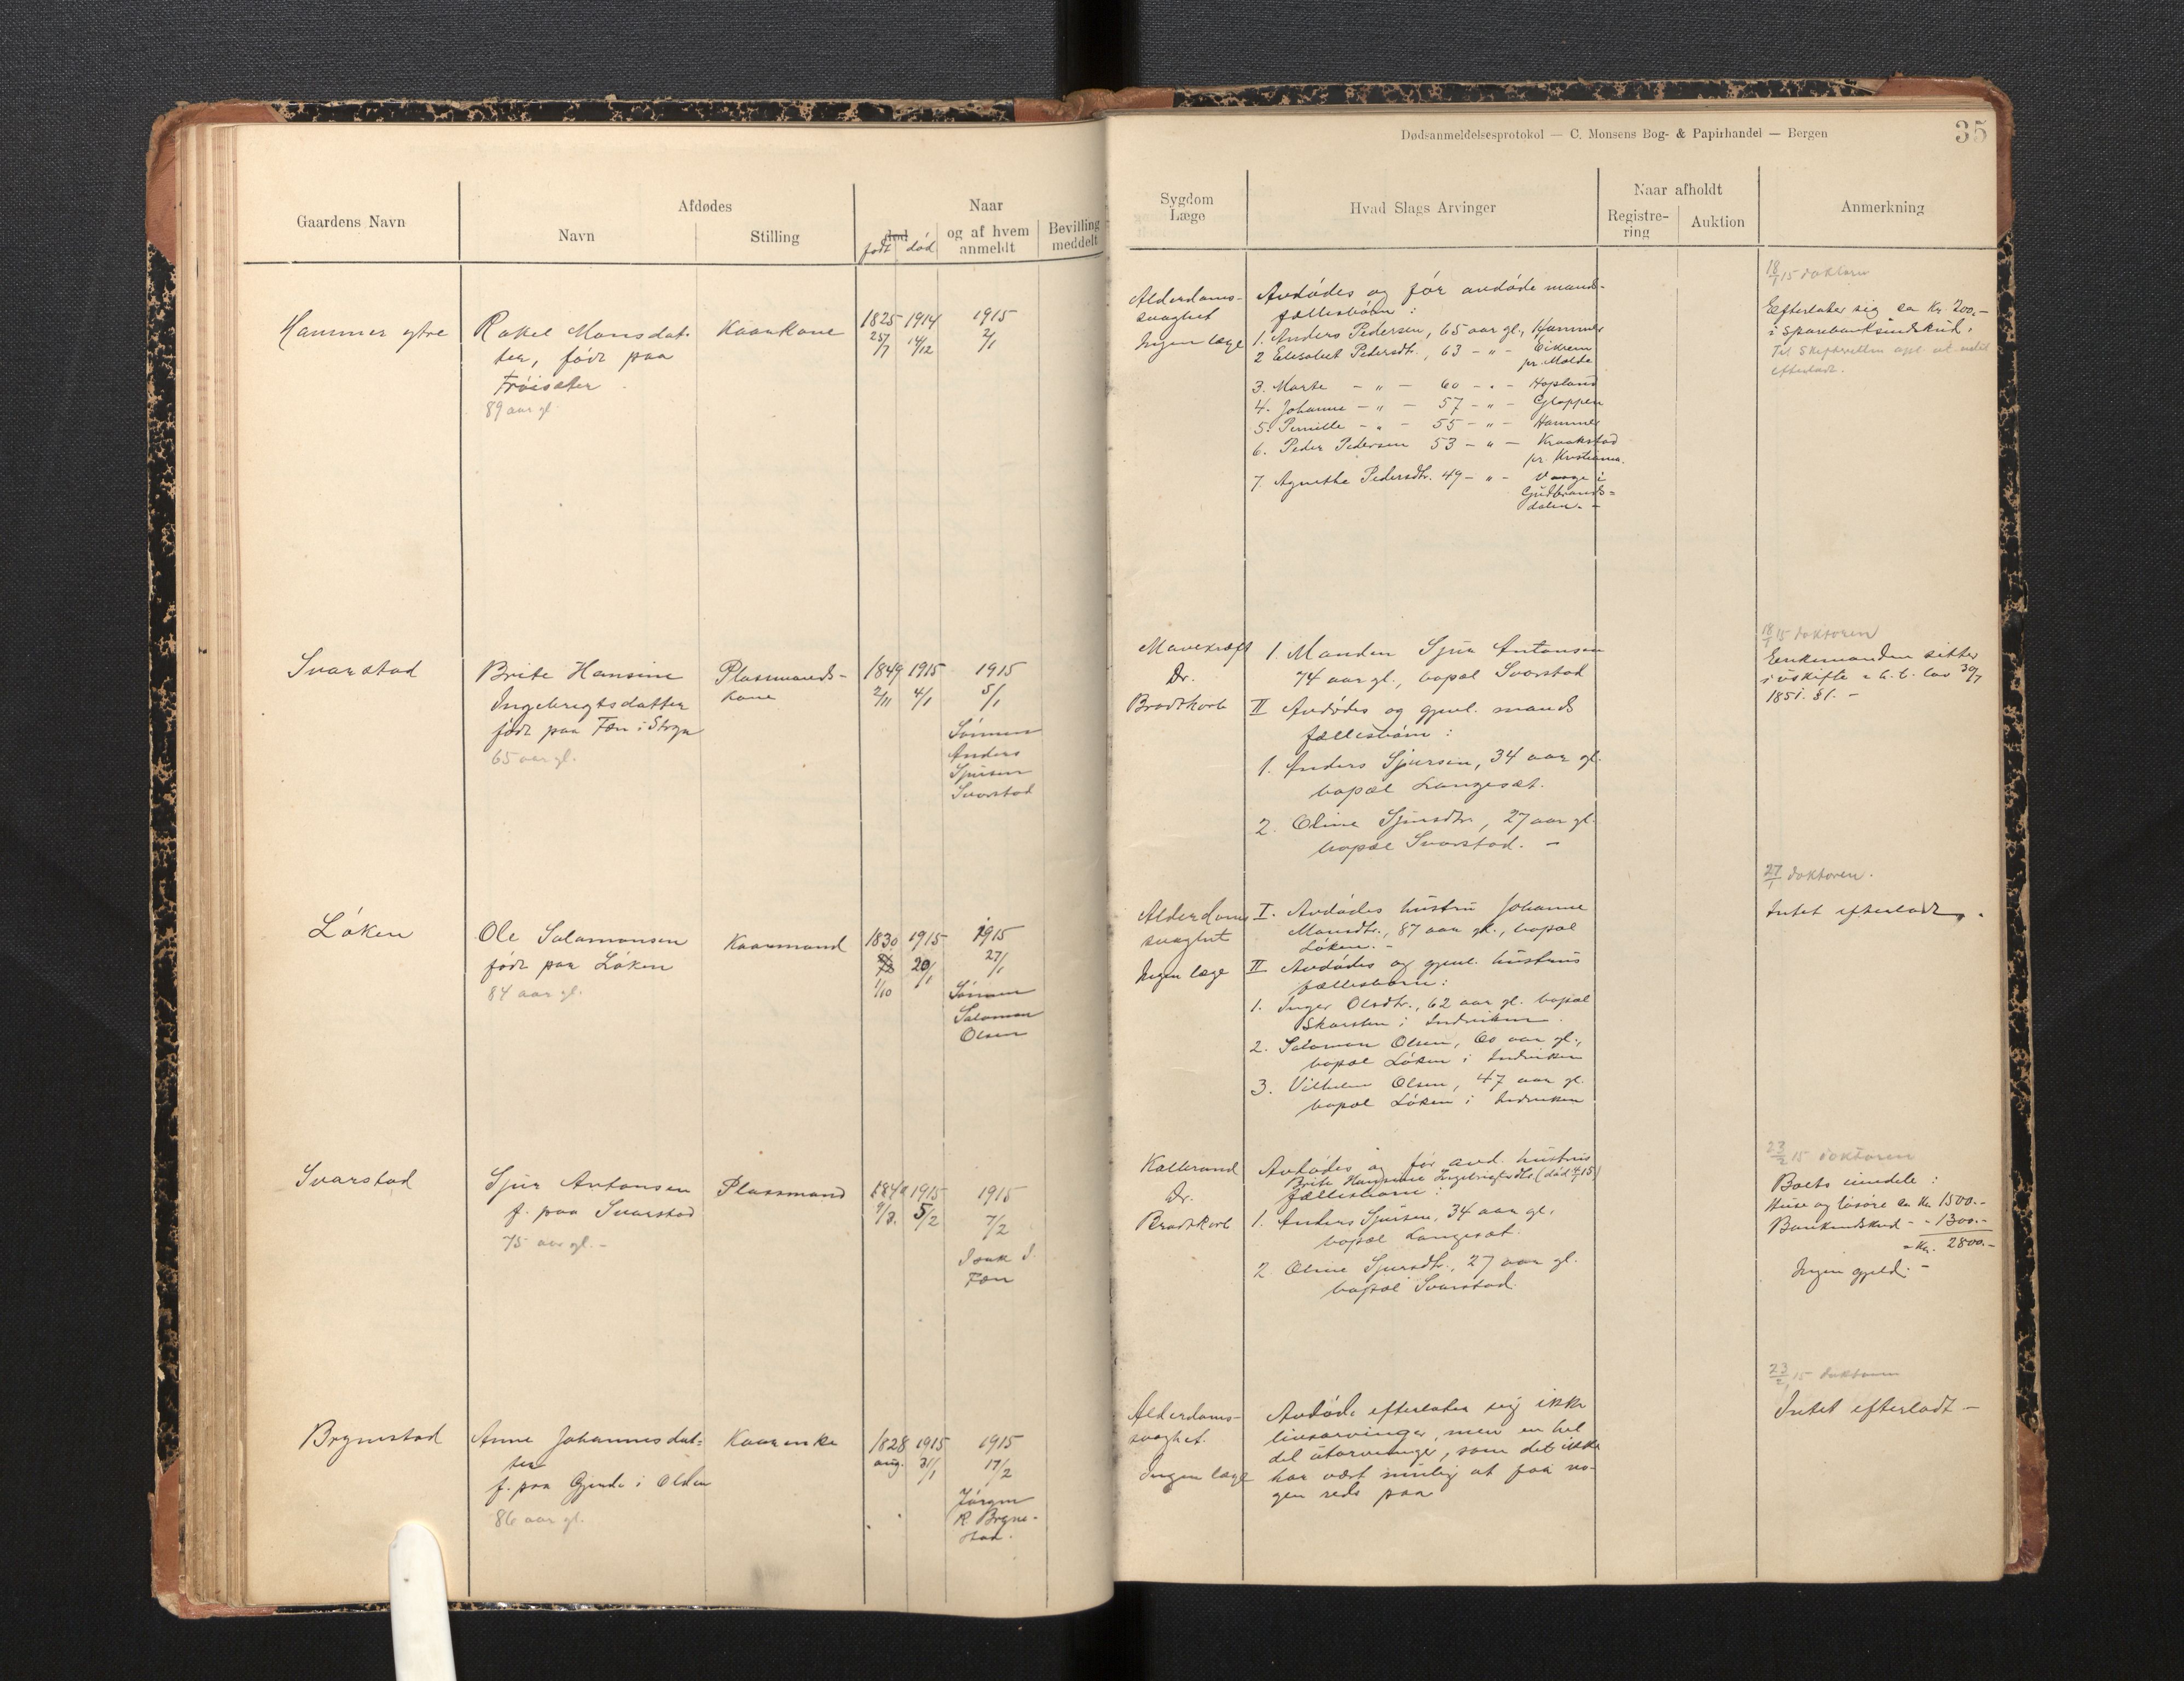 Dødsanmeldelsesprotokol — C. Monsens Bog- & Papirhandel — Bergen
35
Gaardens Navn
Afdødes
Navn
Stilling
Naar
død
født død
og af hvem
anmeldt
Bevilling
meddelt
Sygdom
Læge
Hvad Slags Arvinger
Naar afholdt
Registre-
ring
Auktion
Anmerkning
Hammer ytre
Rakel Monsdat-
ter, født paa
Frøisæter
89 aar gl.
Kaarkone
1825 1914
25/7 14/12
1915
2/1
Alderdoms-
svaghet
Ingen læge
Avdødes og før avdøde mands
fællesbørn :
1. Anders Pedersen, 65 aar gl., Hammer
2 Elisabet Pedersdtr., 63 – " – Eikrem
pr. Molde
3. Marte – " – 60 – " – Hopland
4. Johanne – " – 57 – " – Gloppen
5. Pernille – " – 55 – " – Hammer
6. Peder Pedersen 53 – " – Kraakstad
pr. Kristiania.
7. Agnethe Pedersdtr. 49 – " – Vaage i
Gudbrands=
dalen. –
18/1 15 doktoren
Efterlater sig ca Kr. 200,–
i Sparebankindskud.
Til Skifteretten opl. at intet
efterladt.
Svarstad
Brite Hansine
Ingebrigtsdatter
født paa Fæn i Stryn
65 aar gl.
Plassmands-
kone
1849 1915
2/11 4/1
1915
5/1
Sønnen
Anders
Sjursen
Svarstad
Mavekræft
Dr.
Bradtkorb
1. Manden Sjur Antonsen
74 aar gl., bopæl Svarstad
II Avdødes og gjenl. mands
fællesbørn :
1. Anders Sjursen, 34 aar gl.
bopæl Langesæt.
2. Oline Sjursdtr., 27 aar gl.
bopæl Svarstad. –
18/1 15 doktoren
Enkemanden sitter
i uskifte i h. t. lov 30/7
1851. §1. –
Løken
Ole Salamonsen
født paa Løken
84 aar gl.
Kaarmand
1830 1915
1/10 20/1
1915
27/1
Sønnen
Salomon
Olsen
Alderdoms
svaghet
Ingen læge
I. Avdødes hustru Johanne
Monsdtr., 87 aar gl., bopæl
Løken. –
II Avdødes og gjenl. hustrus
fællesbørn :
1. Inger Olsdtr., 62 aar gl. bopæl
Skarsten i Indviken.
2. Salomon Olsen, 60 aar gl.,
bopæl Løken i Indviken
3. Vilhelm Olsen, 47 aar gl.
bopæl Løken i Indviken
27/1 doktoren.
Intet efterladt.
Svarstad
Sjur Antonsen
f. paa Svarstad
75 aar gl. –
Plassmand
1840 1915
5/2
1915
7/2
Isak I.
Fæn
Koldbrand
Dr.
Bradtkorb
Avdødes og før avd. hustrus
Brite Hansine Ingebrigtsdtr. (død 4/1 15)
fællesbørn :
1. Anders Sjursen, 34 aar gl.
bopæl Langesæt.
2. Oline Sjursdtr., 27 aar gl.
bopæl Svarstad.
23/2 15 doktoren
Boets eiendele :
Huse og løsøre ca Kr. 1500.–
Bankindskud – " 1300.–
= Kr. 2800.–
Ingen gjeld. –
Brynestad
Anne Johannesdat=
ter
f. paa Gjerde i Olden
86 aar gl.
Kaarenke
1828 1915
aug. 31/1
1915
17/2
Jørgen
R. Bryne-
stad.
Alderdoms-
svaghet.
Ingen læge
Avdøde efterlater sig ikke
livsarvinger, men en hel
del utarvinger, som det ikke
har vært mulig at faa no-
gen rede paa
23/2 15 doktoren
Intet efterladt –